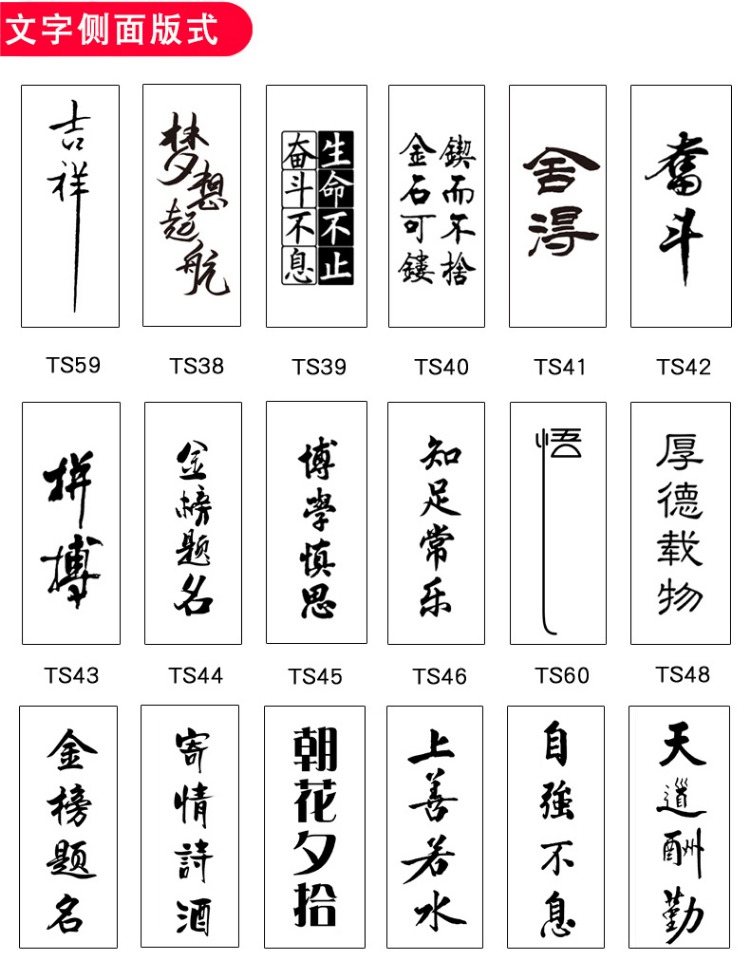 文字侧面版式
吉祥
梦想起航
生命不止
奋斗不息
鍥而不捨
金石可鏤
舍得
奮斗
TS59
TS38
TS39
TS40
TS41
TS42
拼搏
金榜题名
博學慎思
知足常乐
悟
厚德载物
TS43
TS44
TS45
TS46
TS60
TS48
金榜题名
寄情詩酒
朝花夕拾
上善若水
自強不息
天道酬勤